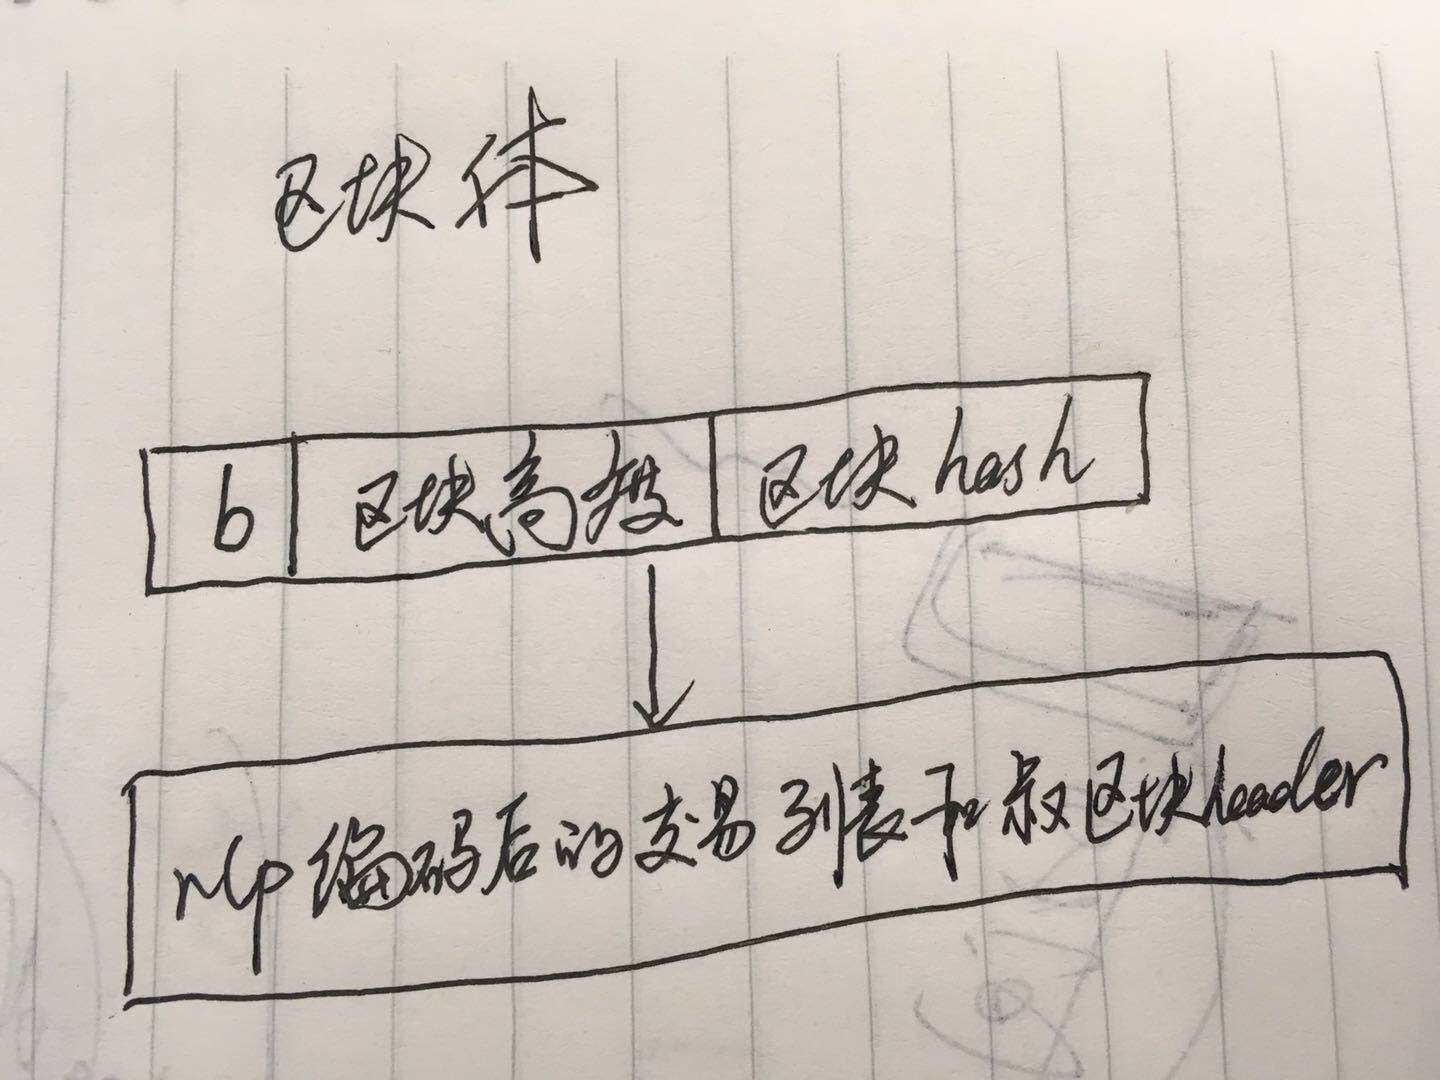 区块体
b 区块高度 区块hash
rlp编码后的交易列表和叔区块header